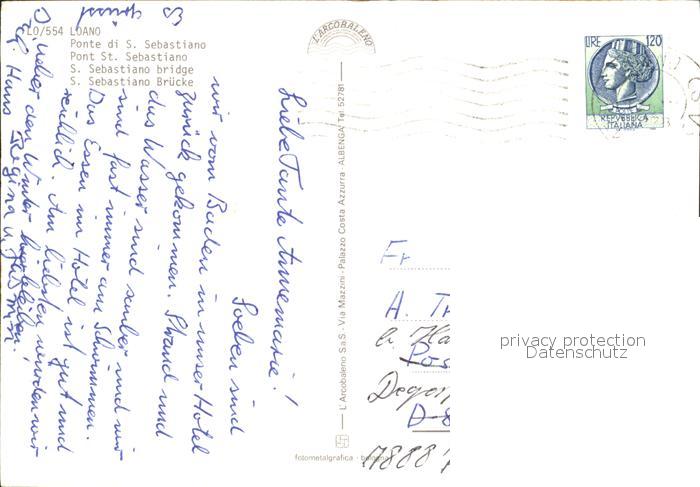 LO/554 LOANO
Ponte di S. Sebastiano
Pont St. Sebastiano
S. Sebastiano bridge
S. Sebastiano Brücke
L'ARCOBALENO
LIRE 120
REPVBBLICA
ITALIANA
L'Arcobaleno S.a.S. - Via Mazzini - Palazzo Costa Azzurra - ALBENGA Tel. 52781
fotometalgrafica - bologna
Liebe Tante Annemarie!
Soeben sind
wir vom Baden in unser Hotel
zurück gekommen. Strand und
das Wasser sind sauber und wir
sind fast immer am Schwimmen.
Das Essen im Hotel ist gut und
reichlich. Am liebsten würden wir
über den Winter hierbleiben!
Hans Regina u.
Fr
A. T
Pos
Deger
D-8
7888
privacy protection
Datenschutz